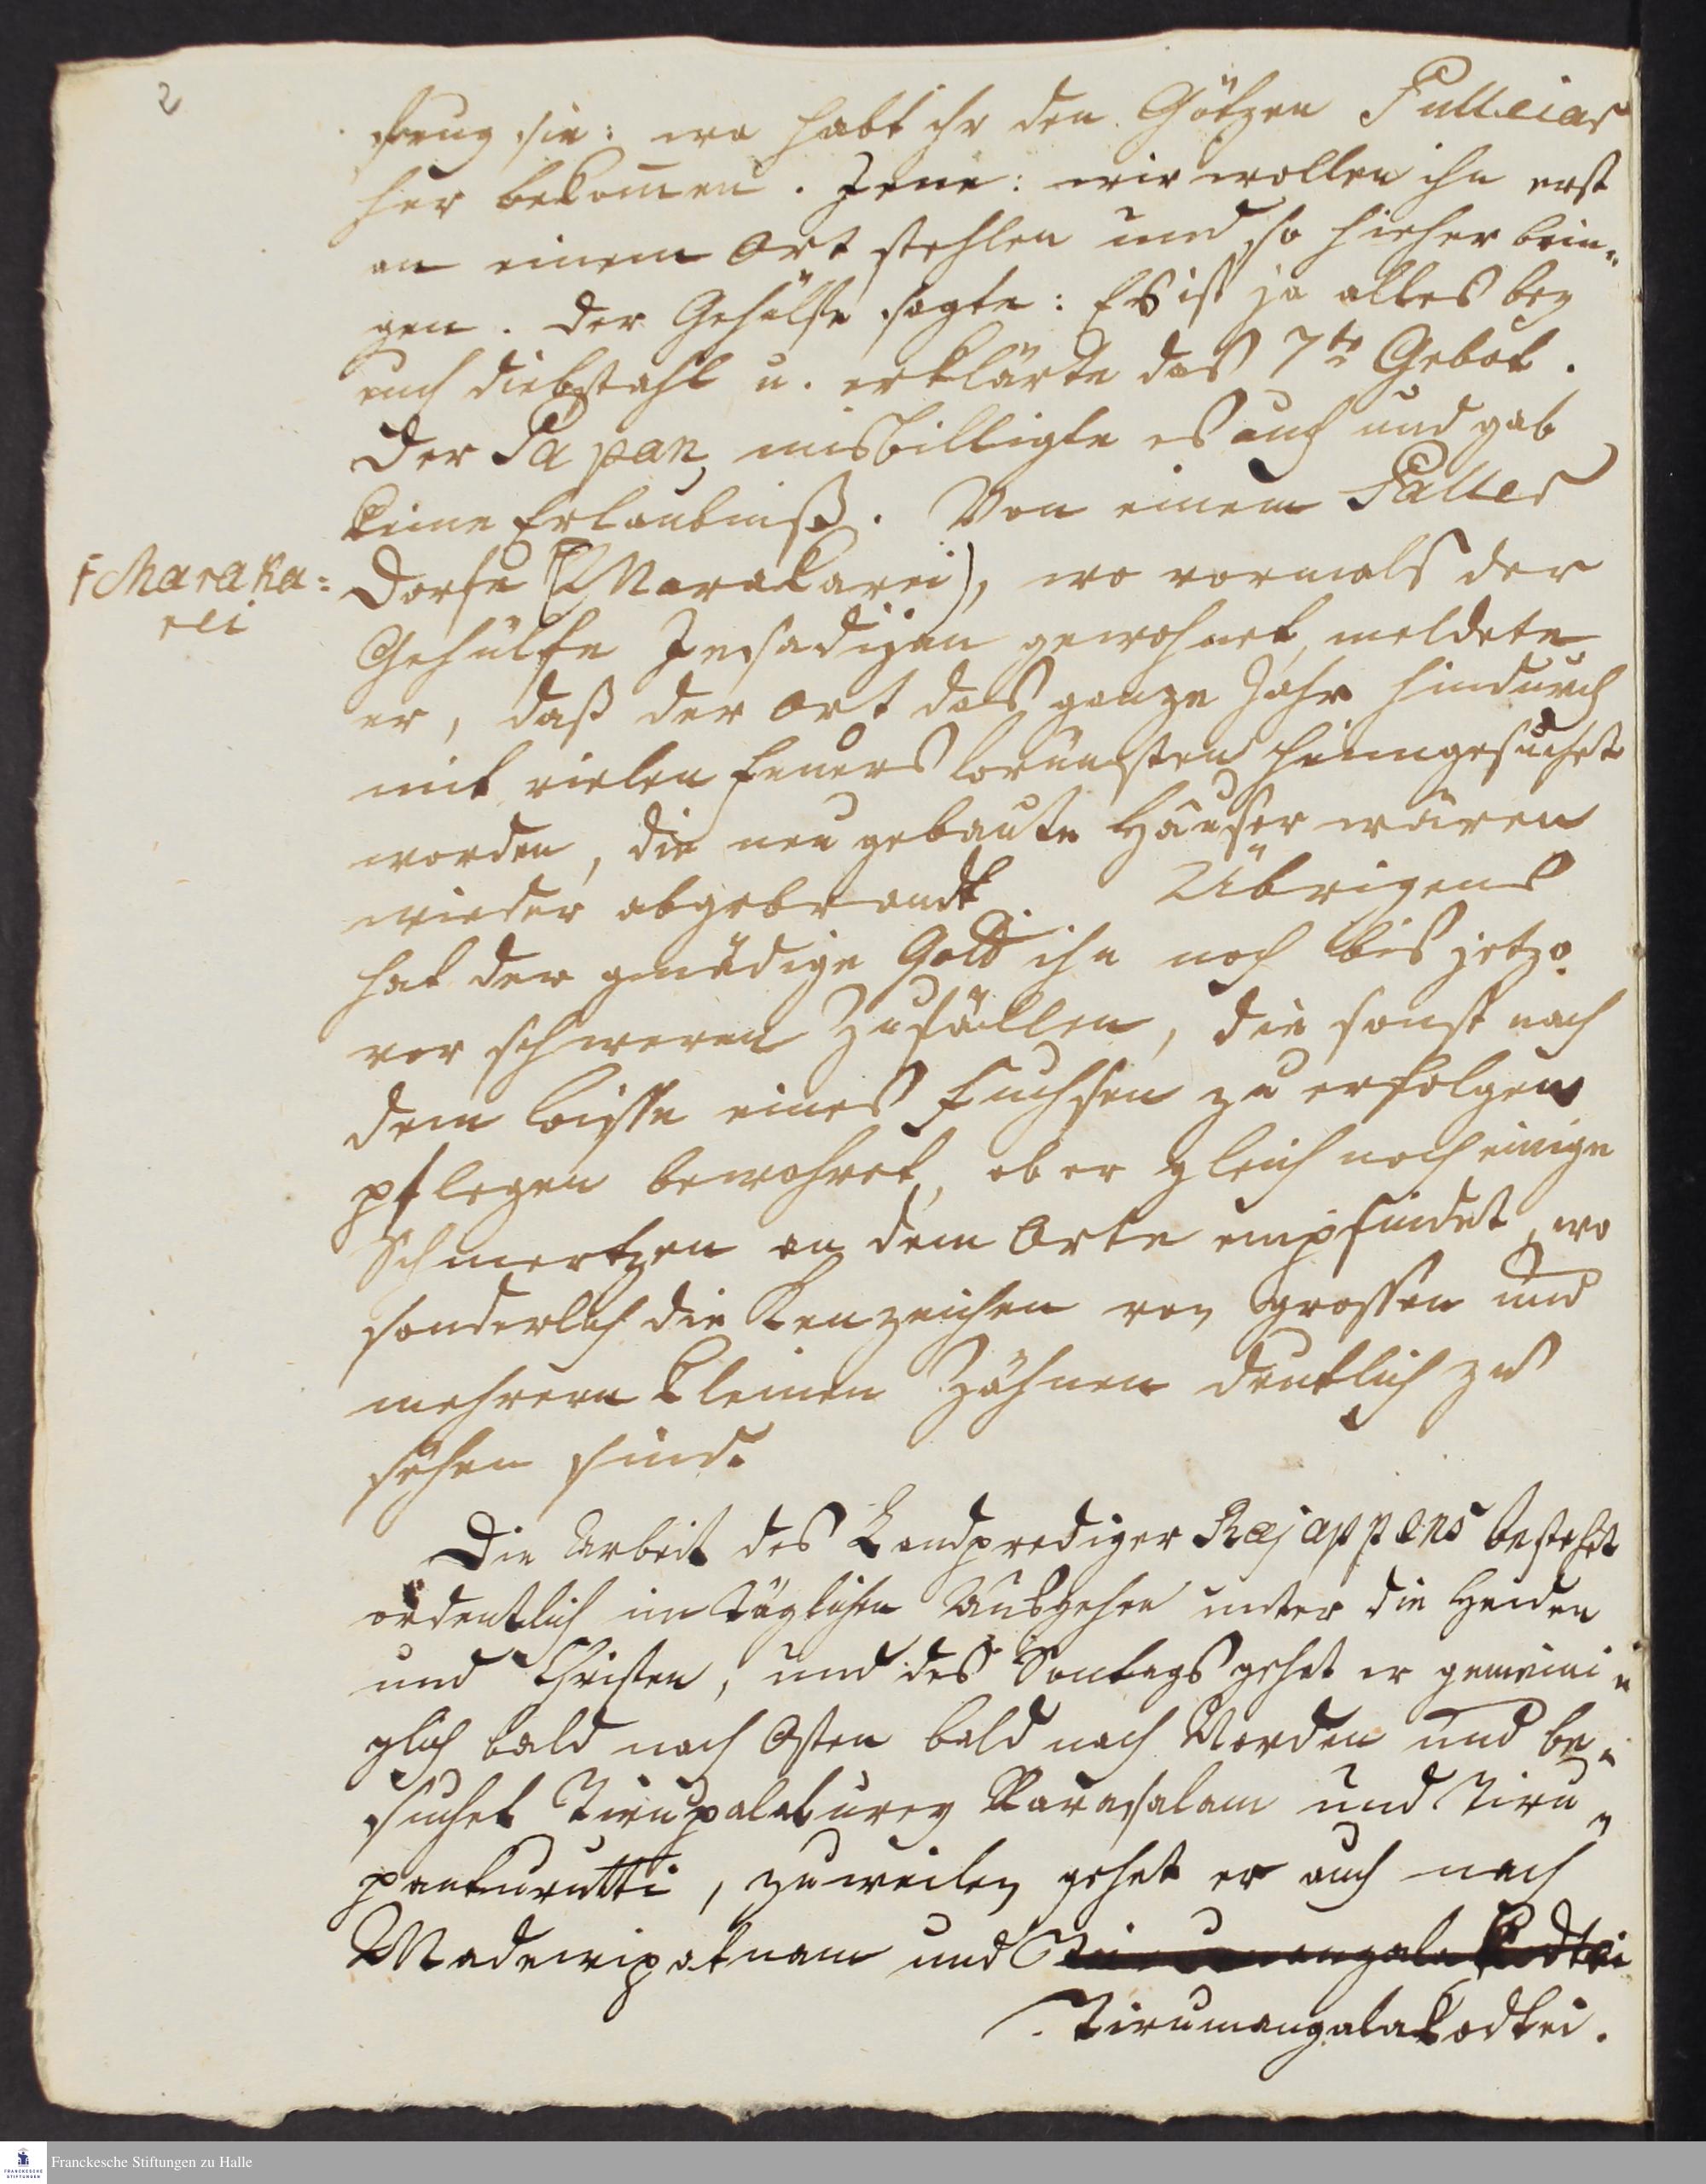 2
frug sie: wo habt ihr den Götzen Pulleiar
her bekom̅en. Jene: wir wollen ihn erst
an einem Ort stehlen und so hieher brin-
gen. Der Gehülfe sagte: Es ist ja alles bey
euch diebstahl u. erklärte das 7te Gebot.
Der Papan misbilligte es auch und gab
keine Erlaubniß. Von einem Paller
Dorfe (Marakarei), wo vormals der
† Maraka=
rei
Gehülfe Jesadijan gewohnet, meldete
er, daß der Ort das ganze Jahr hindurch
mit vielen Feuers brünsten heimgesuchet
worden, die neu gebaute Häuser wären
wieder abgebrandt. Übrigens
hat der gnädige Gott ihn noch bis jetzo
vor schweren Zufällen, die sonst nach
dem bisse eines Fuchsen zu erfolgen
pflegen bewahret, ob er gleich noch einige
Schmertzen an dem Orte empfindet, wo
sonderlich die Kenzeichen von grossen und
mehrern kleinen Zähnen deutlich zu
sehen sind.
Die Arbeit des Landprediger Rajappens bestehet
ordentlich im täglichen Ausgehen unter die Heiden
und Christen, und des Sontags gehet er gemeini-
glich bald nach Osten bald nach Norden und be-
suchet Tirupalaturey Karasalam und Tiru-
panturutti, zuweilen gehet er auch nach
Madewipatnam und Tirumangalakodtei
Tirumangalakodtei.
Franckesche Stiftungen zu Halle